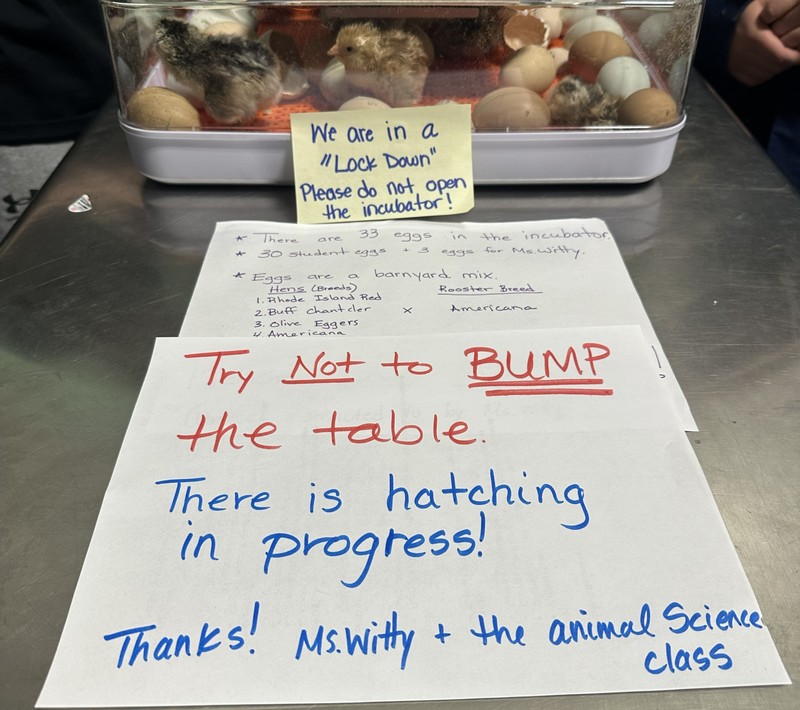 We are in a
"Lock Down"
Please do not open
the incubator!
* There are 33 eggs in the incubator.
* 30 student eggs + 3 eggs for Ms. Witty.
* Eggs are a barnyard mix.
Hens (Breeds) Rooster Breed
1. Rhode Island Red
2. Buff Chantcler x Americana
3. Olive Eggers
4. Americana
!
Try Not to BUMP
the table.
There is hatching
in progress!
Thanks! Ms. Witty + the animal Science
class